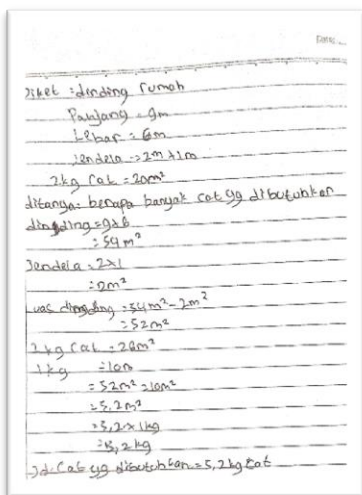 Diket : dinding rumah
Panjang = 9m
Lebar = 6m
Jendela = 2m x 1m
2kg Cat = 20m²
ditanya: berapa banyak cat yg dibutuhkan
dingding = 9x6
= 54 m²
Jendela = 2x1
= 2m²
Luas dingding = 54m² - 2m²
= 52m²
2kg Cat = 20m²
1kg = 10m
= 52m² = 10m²
= 5,2m²
= 5,2 x 1kg
= 5,2kg
Jd. Cat yg dibutuhkan = 5,2kg Cat